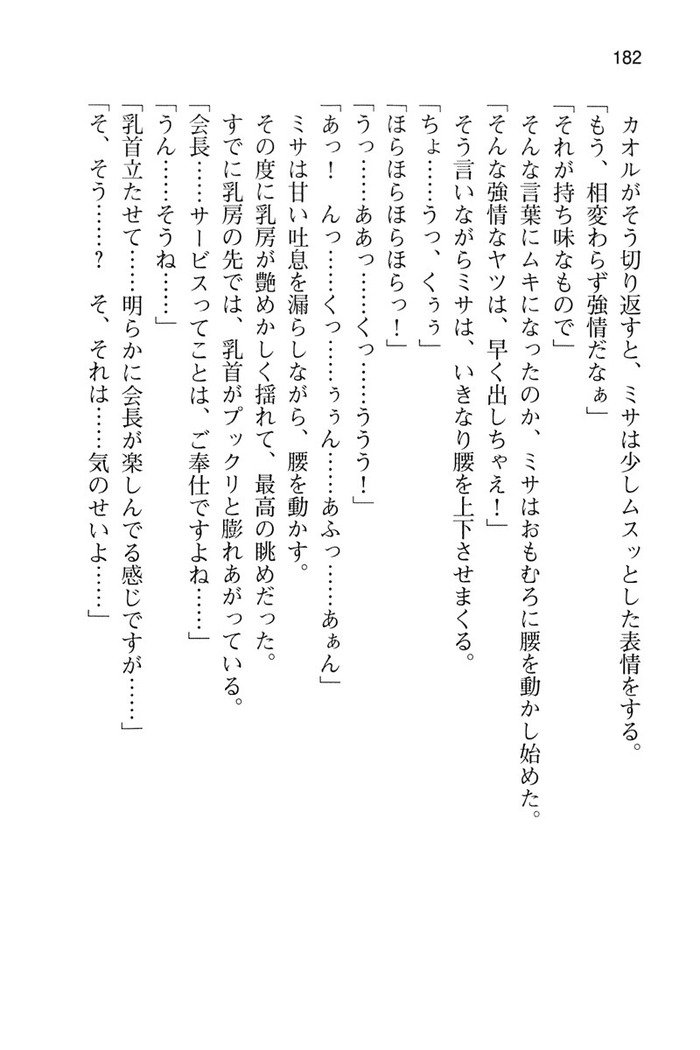 182
カオルがそう切り返すと、ミサは少しムスッとした表情をする。
「もう、相変わらず強情だなぁ」
「それが持ち味なもので」
そんな言葉にムキになったのか、ミサはおもむろに腰を動かし始めた。
「そんな強情なヤツは、早く出しちゃえ！」
そう言いながらミサは、いきなり腰を上下させまくる。
「ちょ……うっ、くぅぅ」
「ほらほらほらほらっ！」
「うっ……ああっ……くっ……ううう！」
「あっ！　んっ……くっ……ぅぅん……あふっ……あぁん」
ミサは甘い吐息を漏らしながら、腰を動かす。
その度に乳房が艶めかしく揺れて、最高の眺めだった。
すでに乳房の先では、乳首がプックリと膨れあがっている。
「会長……サービスってことは、ご奉仕ですよね……」
「うん……そうね……」
「乳首立たせて……明らかに会長が楽しんでる感じですが……」
「そ、そう……？　そ、それは……気のせいよ……」